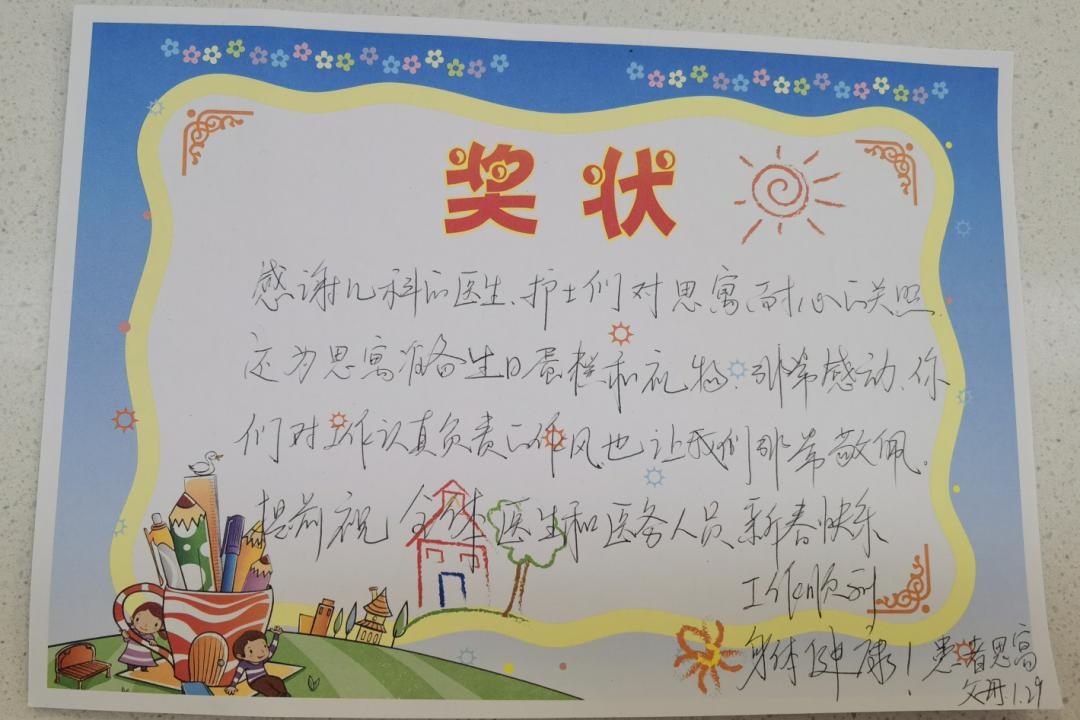 奖状
感谢儿科的医生、护士们对思寓耐心的关照,
还为思寓准备生日蛋糕和礼物,非常感动,你
们对工作认真负责的作风也让我们非常敬佩。
提前祝全体医生和医务人员新春快乐
工作顺利
身体健康!患者思寓
父母.1.29